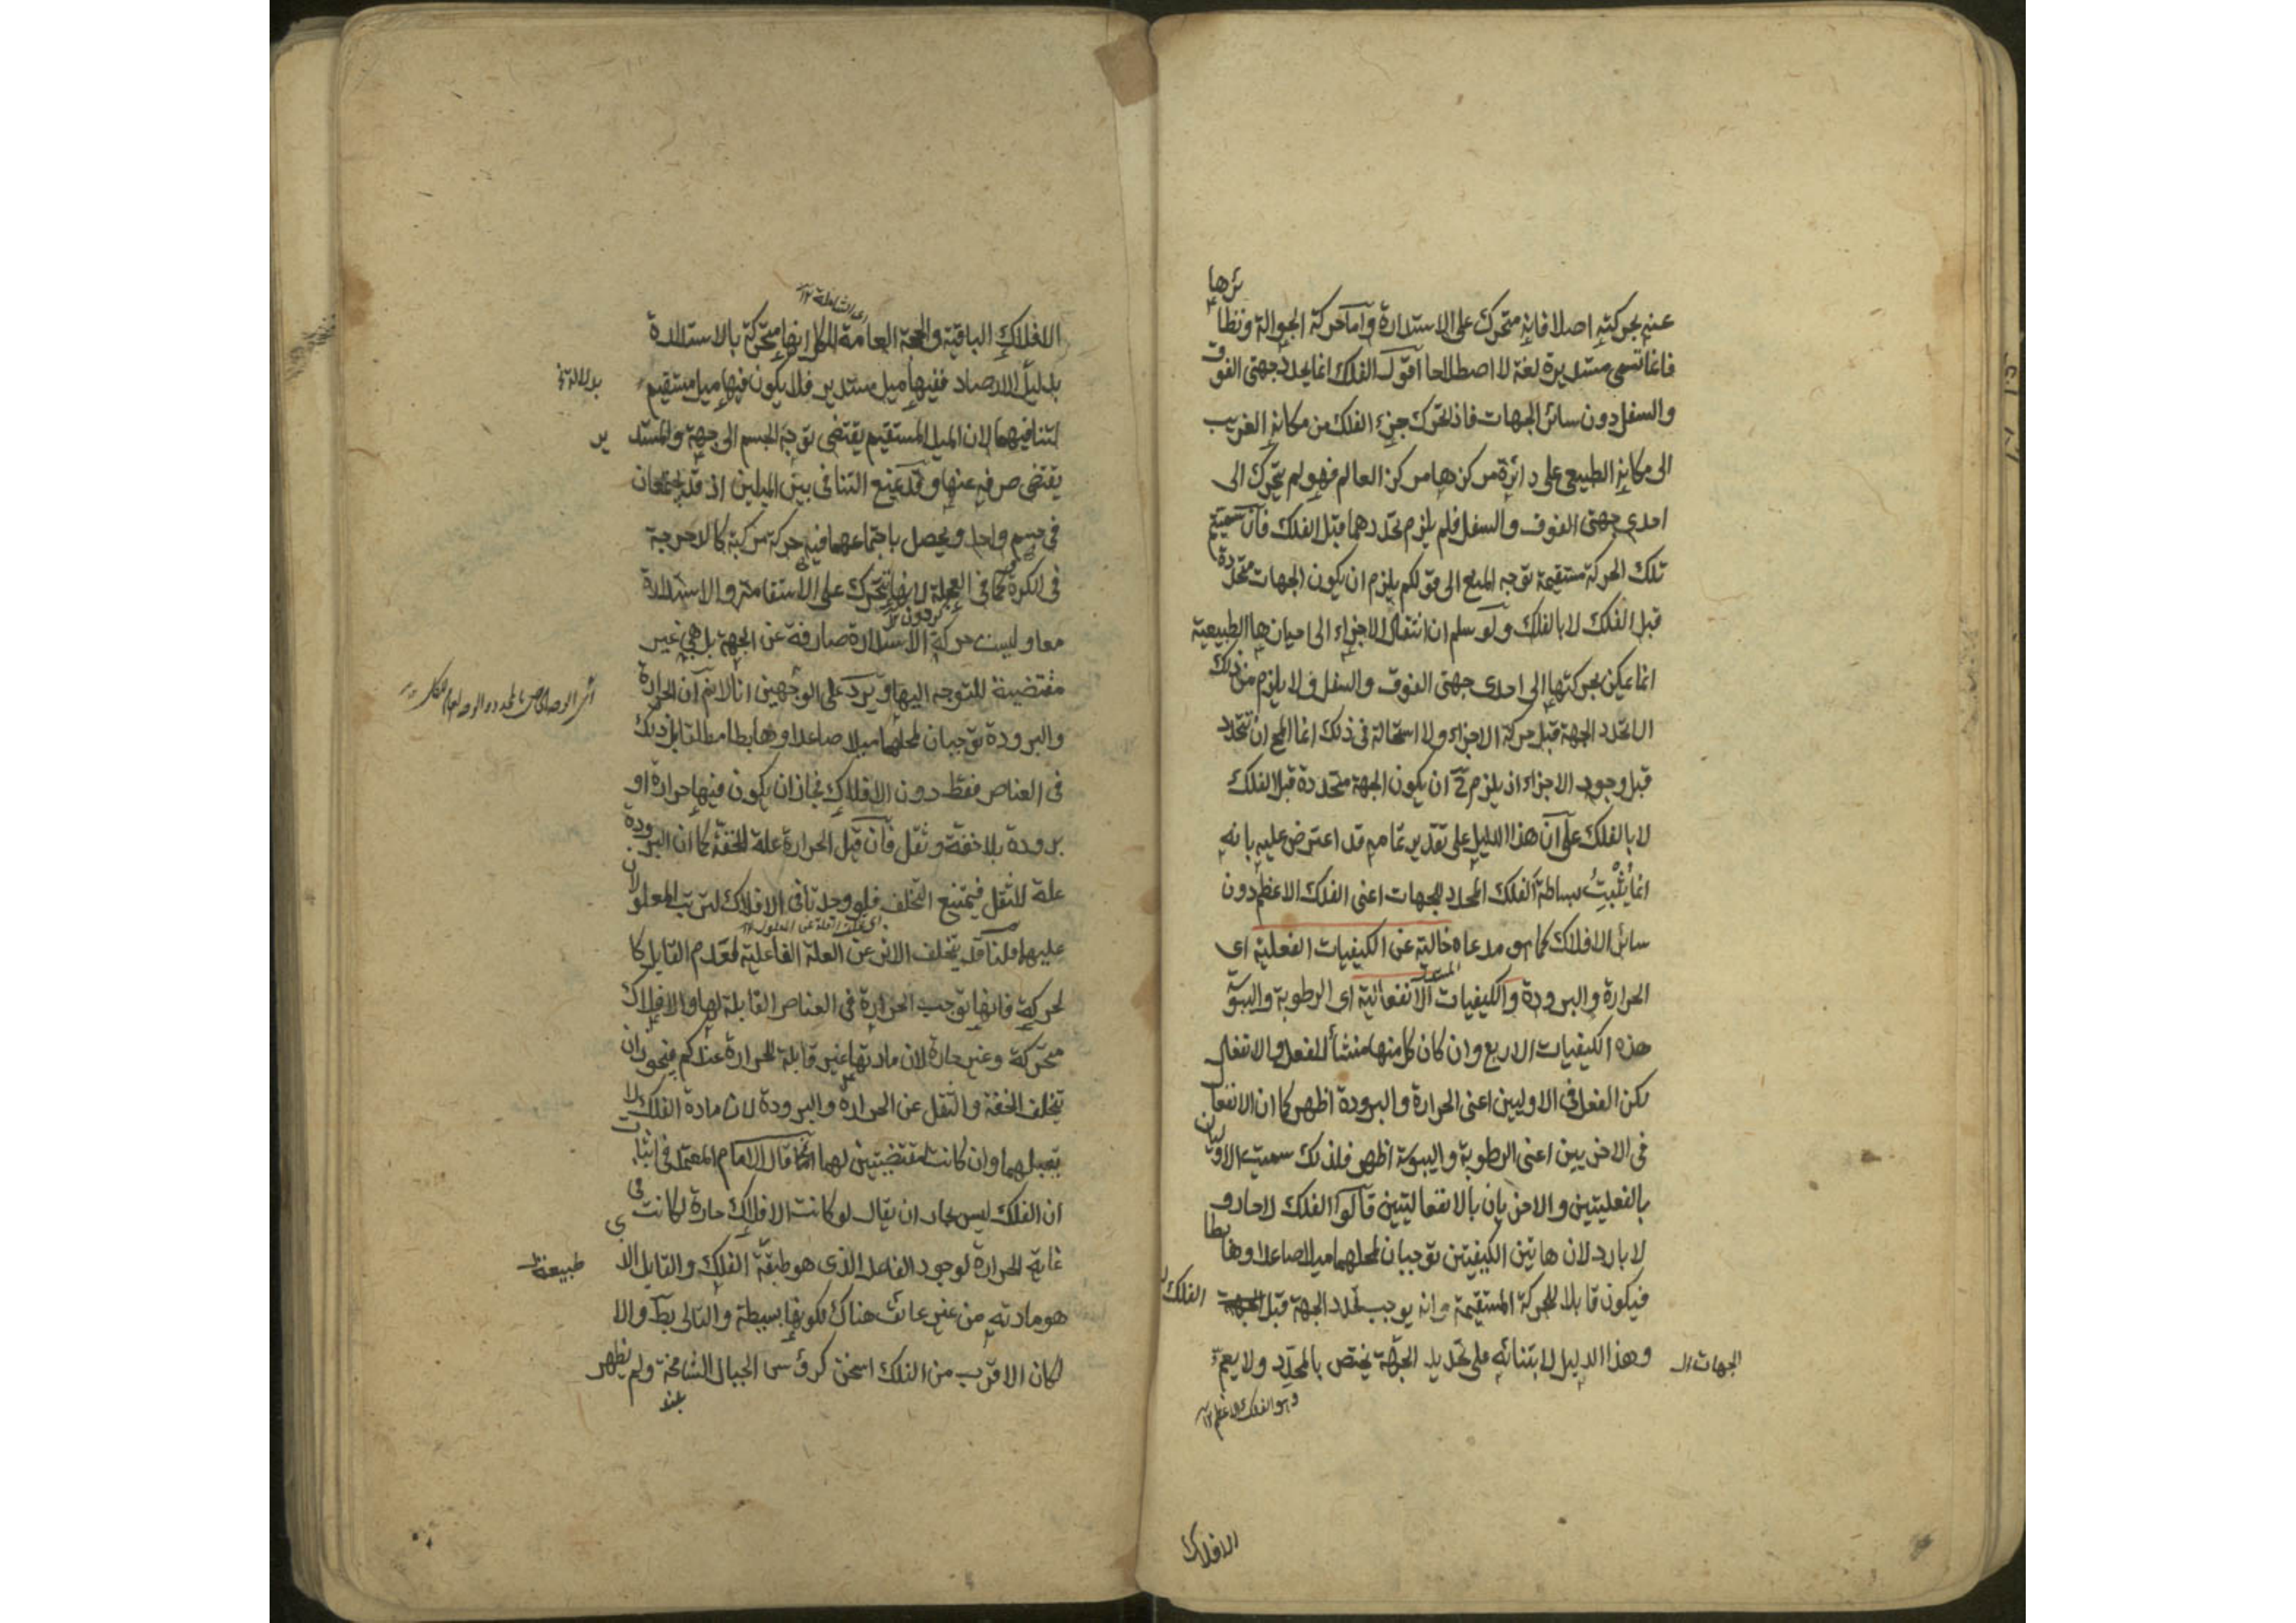 عنه بحركته اصلا فانه متحرك على الاستدارة وآما حركة الجوالة ونظائرها
فانما تسمى مستديرة لغة لا اصطلاحا اقول الفلك انما يحدد جهتى الفوق
والسفل دون سائر الجهات فاذا تحرك جزء الفلك من مكانه الغريب
الى مكانه الطبيعى على دائرة مركزها مركز العالم فهو لم يتحرك الى
احدى جهتى الفوق والسفل فلم يلزم تحددهما قبل الفلك فان سميتم
تلك الحركة مستقيمة توجه المنع الى قولكم يلزم ان يكون الجهات متحددة
قبل الفلك لا بالفلك ولو سلم ان انتقال الاجزاء الى احيازها الطبيعية
انما يمكن بحركتها الى احدى جهتى الفوق والسفل فلا يلزم من ذلك
الا تحدد الجهة قبل حركة الاجزاء ولا استحالة فى ذلك انما المح ان تتحدد
قبل وجود الاجزاء اذ يلزم ح ان يكون الجهة متحددة قبل الفلك
لا بالفلك على ان هذا الدليل على تقدير تمامه قد اعترض عليه بانه
انما يثبت بساطة الفلك المحدد للجهات اعنى الفلك الاعظم دون
سائر الافلاك كما هو مدعاه خالية عن الكيفيات الفعلية اى
الحرارة والبرودة والكيفيات الانفعالية اى الرطوبة واليبوسة
هذه الكيفيات الاربع وان كان كل منها منشأ للفعل والانفعال
لكن الفعل فى الاوليين اعنى الحرارة والبرودة اظهر كما ان الانفعال
فى الاخريين اعنى الرطوبة واليبوسة اظهر فلذلك سميت الاوليان
بالفعليتين والاخريان بالانفعاليتين قالوا الفلك لا حار و
لا بارد لان هاتين الكيفيتين توجبان لمحلهما ميلا صاعدا وهابطا
فيكون قابلا للحركة المستقيمة وانه يوجب تحدد الجهة قبل الفلك
وهذا الدليل لابتنائه على تحديد الجهة يختص بالمحدد ولا يعم
الجهات
وهو الفلك الاعظم ١٢
الافلاك
اى الشاملة ١٢
الافلاك الباقية والحجة العامة للكل انها متحركة بالاستدارة
بدليل الارصاد ففيها ميل مستدير فلا يكون فيها ميل مستقيم
بدلالة
لتنافيهما لان الميل المستقيم يقتضى توجه الجسم الى جهة والمستدير
يقتضى صرفه عنها وقد يمنع التنافى بين الميلين اذ قد يجتمعان
فى جسم واحد ويحصل باجتماعهما فيه حركة مركبة كالدحرجة
فى الكرة كما فى العجلة لانها تتحرك على الاستقامة والاستدارة
گردون
معا وليست حركة الاستدارة صارفة عن الجهة بل هى غير
مقتضية للتوجه اليها ويرد على الوجهين انا لا نم ان الحرارة
والبرودة توجبان لمحلهما ميلا صاعدا وهابطا مطلقا بل ذلك
فى العناصر فقط دون الافلاك فجاز ان يكون فيها حرارة او
برودة بلا خفة وثقل فان قيل الحرارة علة للخفة كما ان البرودة
علة للثقل فيمتنع التخلف فلو وجدتا فى الافلاك لترتب المعلولان
عليهما قلنا قد يتخلف الاثر عن العلة الفاعلية لعدم القابل كا
لحركة فانها توجب الحرارة فى العناصر القابلة لها والافلاك
متحركة وغير حارة لان مادتها غير قابلة للحرارة عندكم فيجوز ان
يتخلف الخفة والثقل عن الحرارة والبرودة لان مادة الفلك لا
يقبلهما وان كانتا مقتضيتين لهما قال الامام المعتمد فى اثبات
ان الفلك ليس بحار ان يقال لو كانت الافلاك حارة لكانت فى
غاية الحرارة لوجود الفاعل الذى هو طبيعة الفلك والقابل الذى
طبيعة
هو مادته من غير عائق هناك لكونها بسيطة والتالى بط والا
لكان الاقرب من الفلك اسخن كرؤس الجبال الشامخة ولم يظهر
بلند